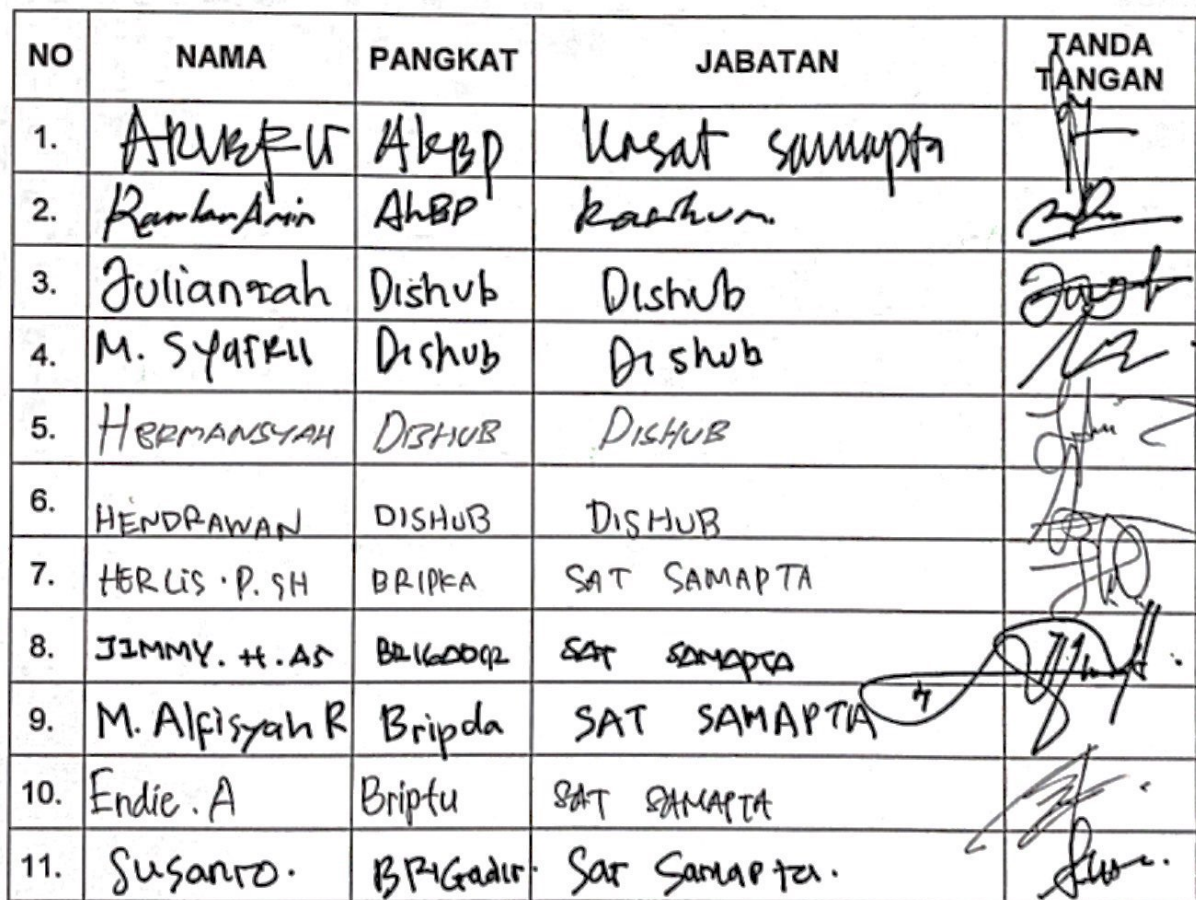 NO NAMA PANGKAT JABATAN TANDA TANGAN
1. AKBP Kasat samapta
2. Ramlan Amin AKBP
3. Juliansah Dishub Dishub
4. M. SYAFRII Dishub Dishub
5. HERMANSYAH DISHUB DISHUB
6. HENDRAWAN DISHUB DISHUB
7. HERLIS . P. SH BRIPKA SAT SAMAPTA
8. JIMMY. H. AS BRIGADIR SAT SAMAPTA
9. M. Alfisyah R Bripda SAT SAMAPTA
10. Endie . A Briptu SAT SAMAPTA
11. Susanto. BRIGadir. Sat Samapta.